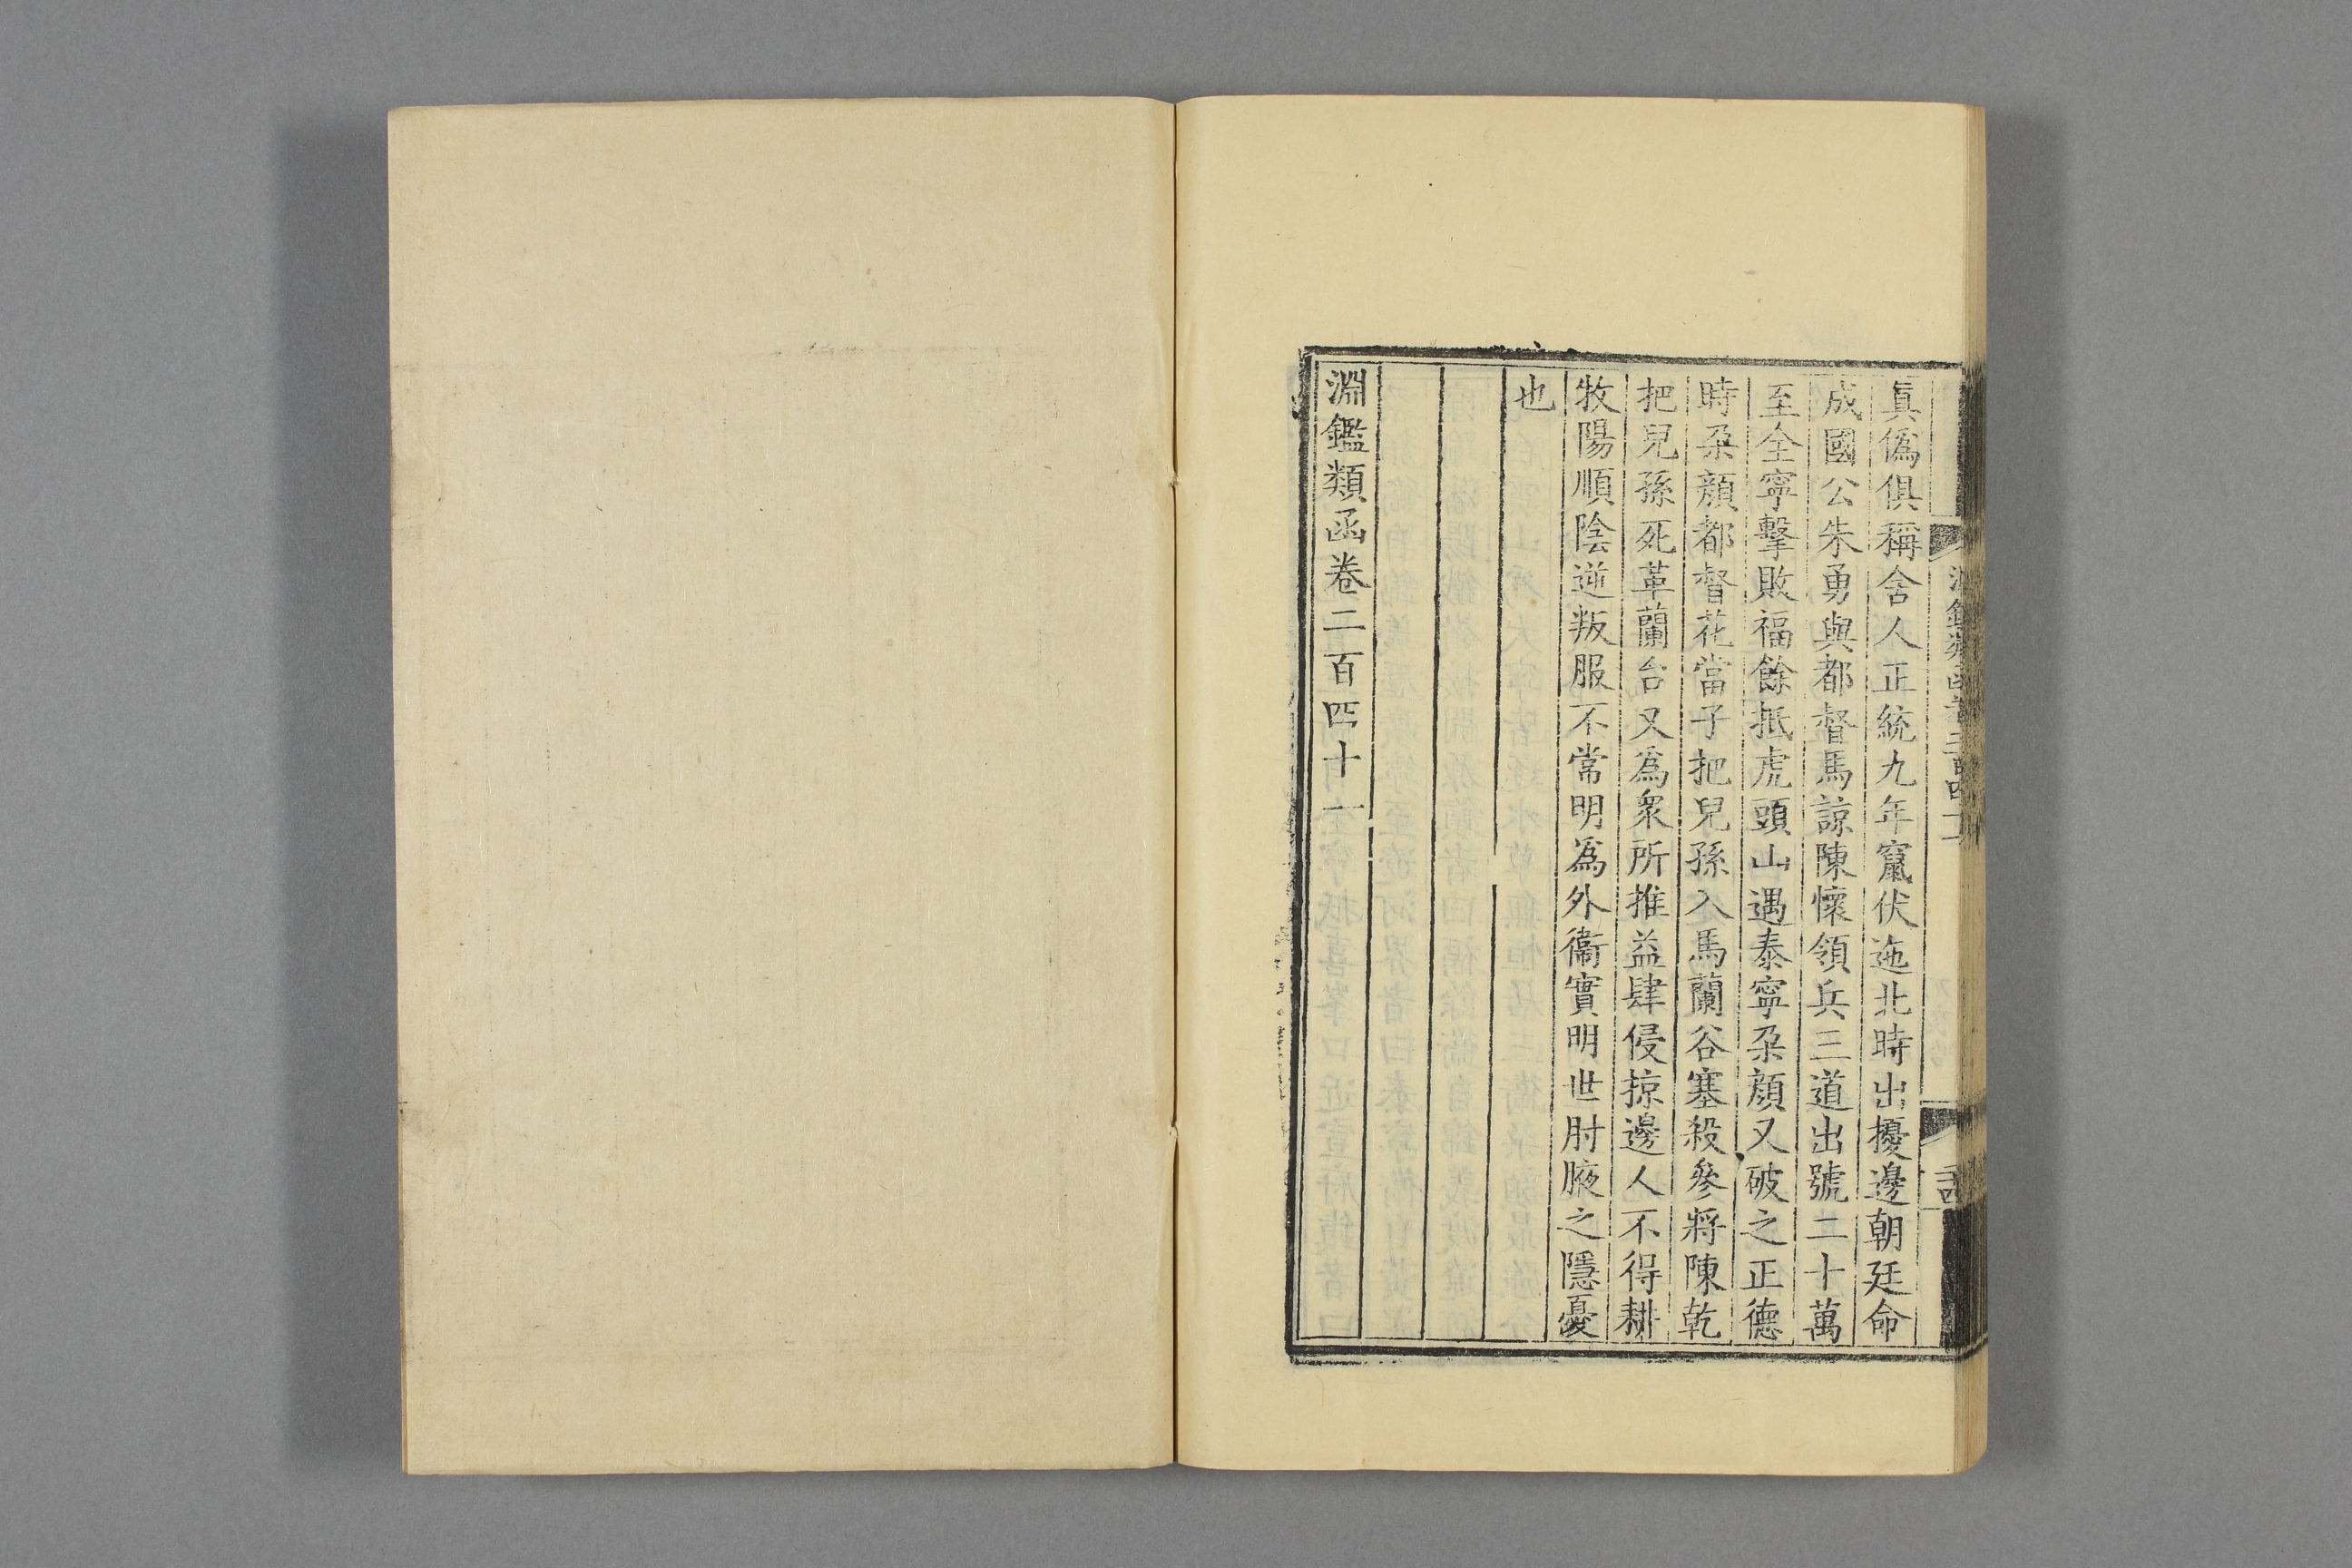 眞僞俱稱舍人正統九年竄伏迤北時出擾邊朝廷命
成國公朱勇與都督馬諒陳懷領兵三道出號二十萬
至全寧擊敗福餘抵虎頭山遇泰寧朶顔又破之正德
時朶顔都督花當子把兒孫入馬蘭谷塞殺參將陳乾
把兒孫死革蘭台又爲衆所推益肆侵掠邊人不得耕
牧陽順陰逆叛服不常明爲外衞實明世肘腋之隱憂
也
淵鑑類函卷二百四十一